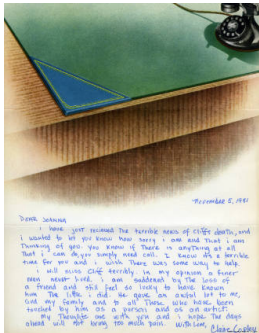 December 5, 1981
Dear Johnny
I have just received the terrible news of Cliff's death, and
I wanted to let you know how sorry I am and that I am
thinking of you. You know if there is anything at all
that I can do, you simply need call. I know it's a terrible
time for you and I wish there was some way to help.
I will miss Cliff terribly. In my opinion a finer
man never lived. I am saddened by the loss of
a friend and still feel so lucky to have known
him the little I did. He gave an awful lot to me,
and my family and to all those who have been
touched by him as a person and as an artist.
My thoughts are with you and I hope the days
ahead will not bring too much pain. With love,